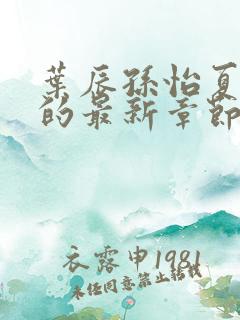 葉辰孫怡夏
的最新章節
衣露申1981
未任同意禁止轉載